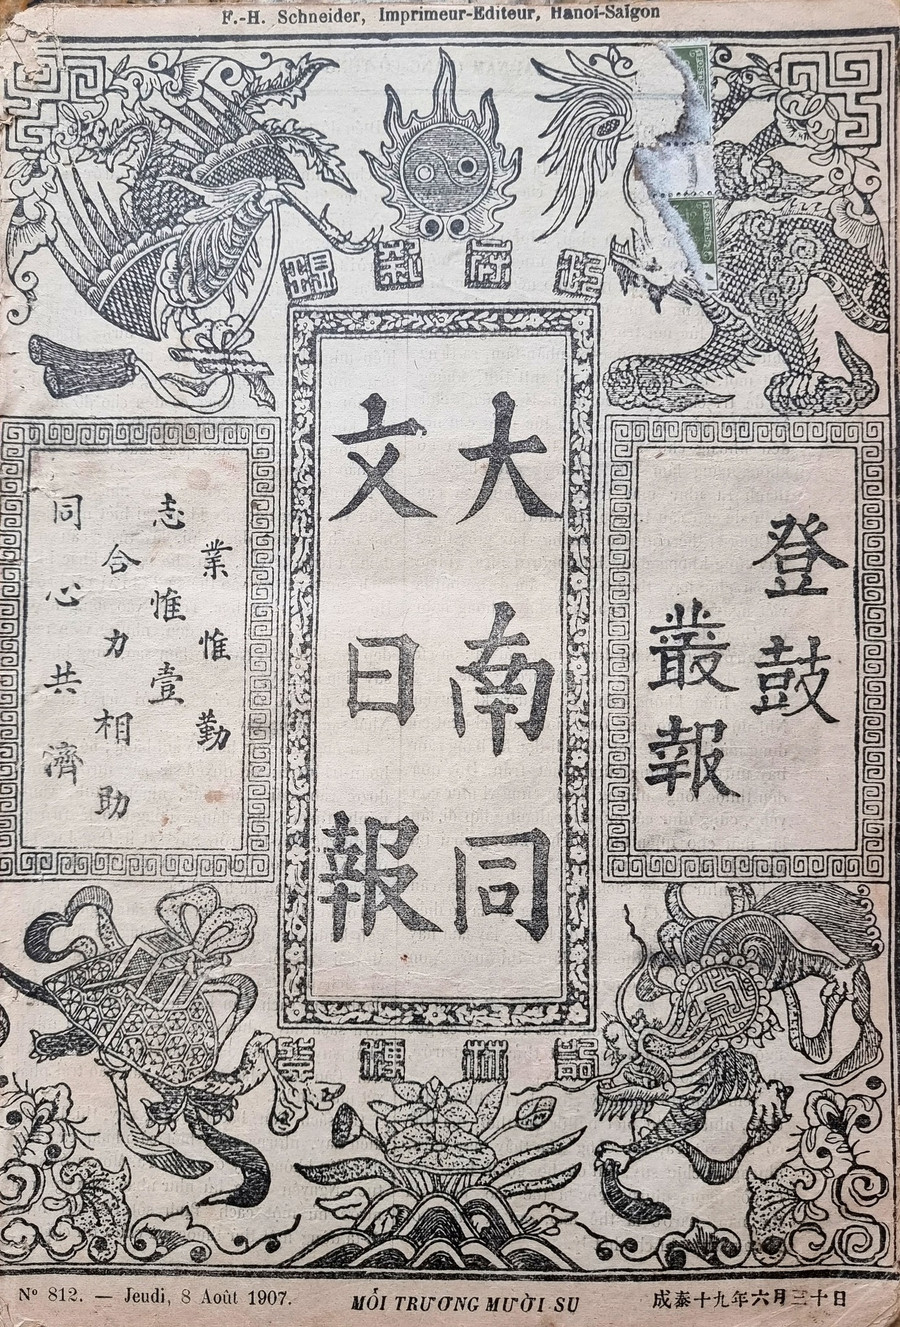 F.-H. Schneider, Imprimeur-Editeur, Hanoi-Saigon
登鼓
叢報
大南同
文日報
業惟勤
志惟壹
合力相助
同心共濟
Nº 812. — Jeudi, 8 Août 1907.
MỖI TRƯƠNG MƯỜI SU
成泰十九年六月三十日